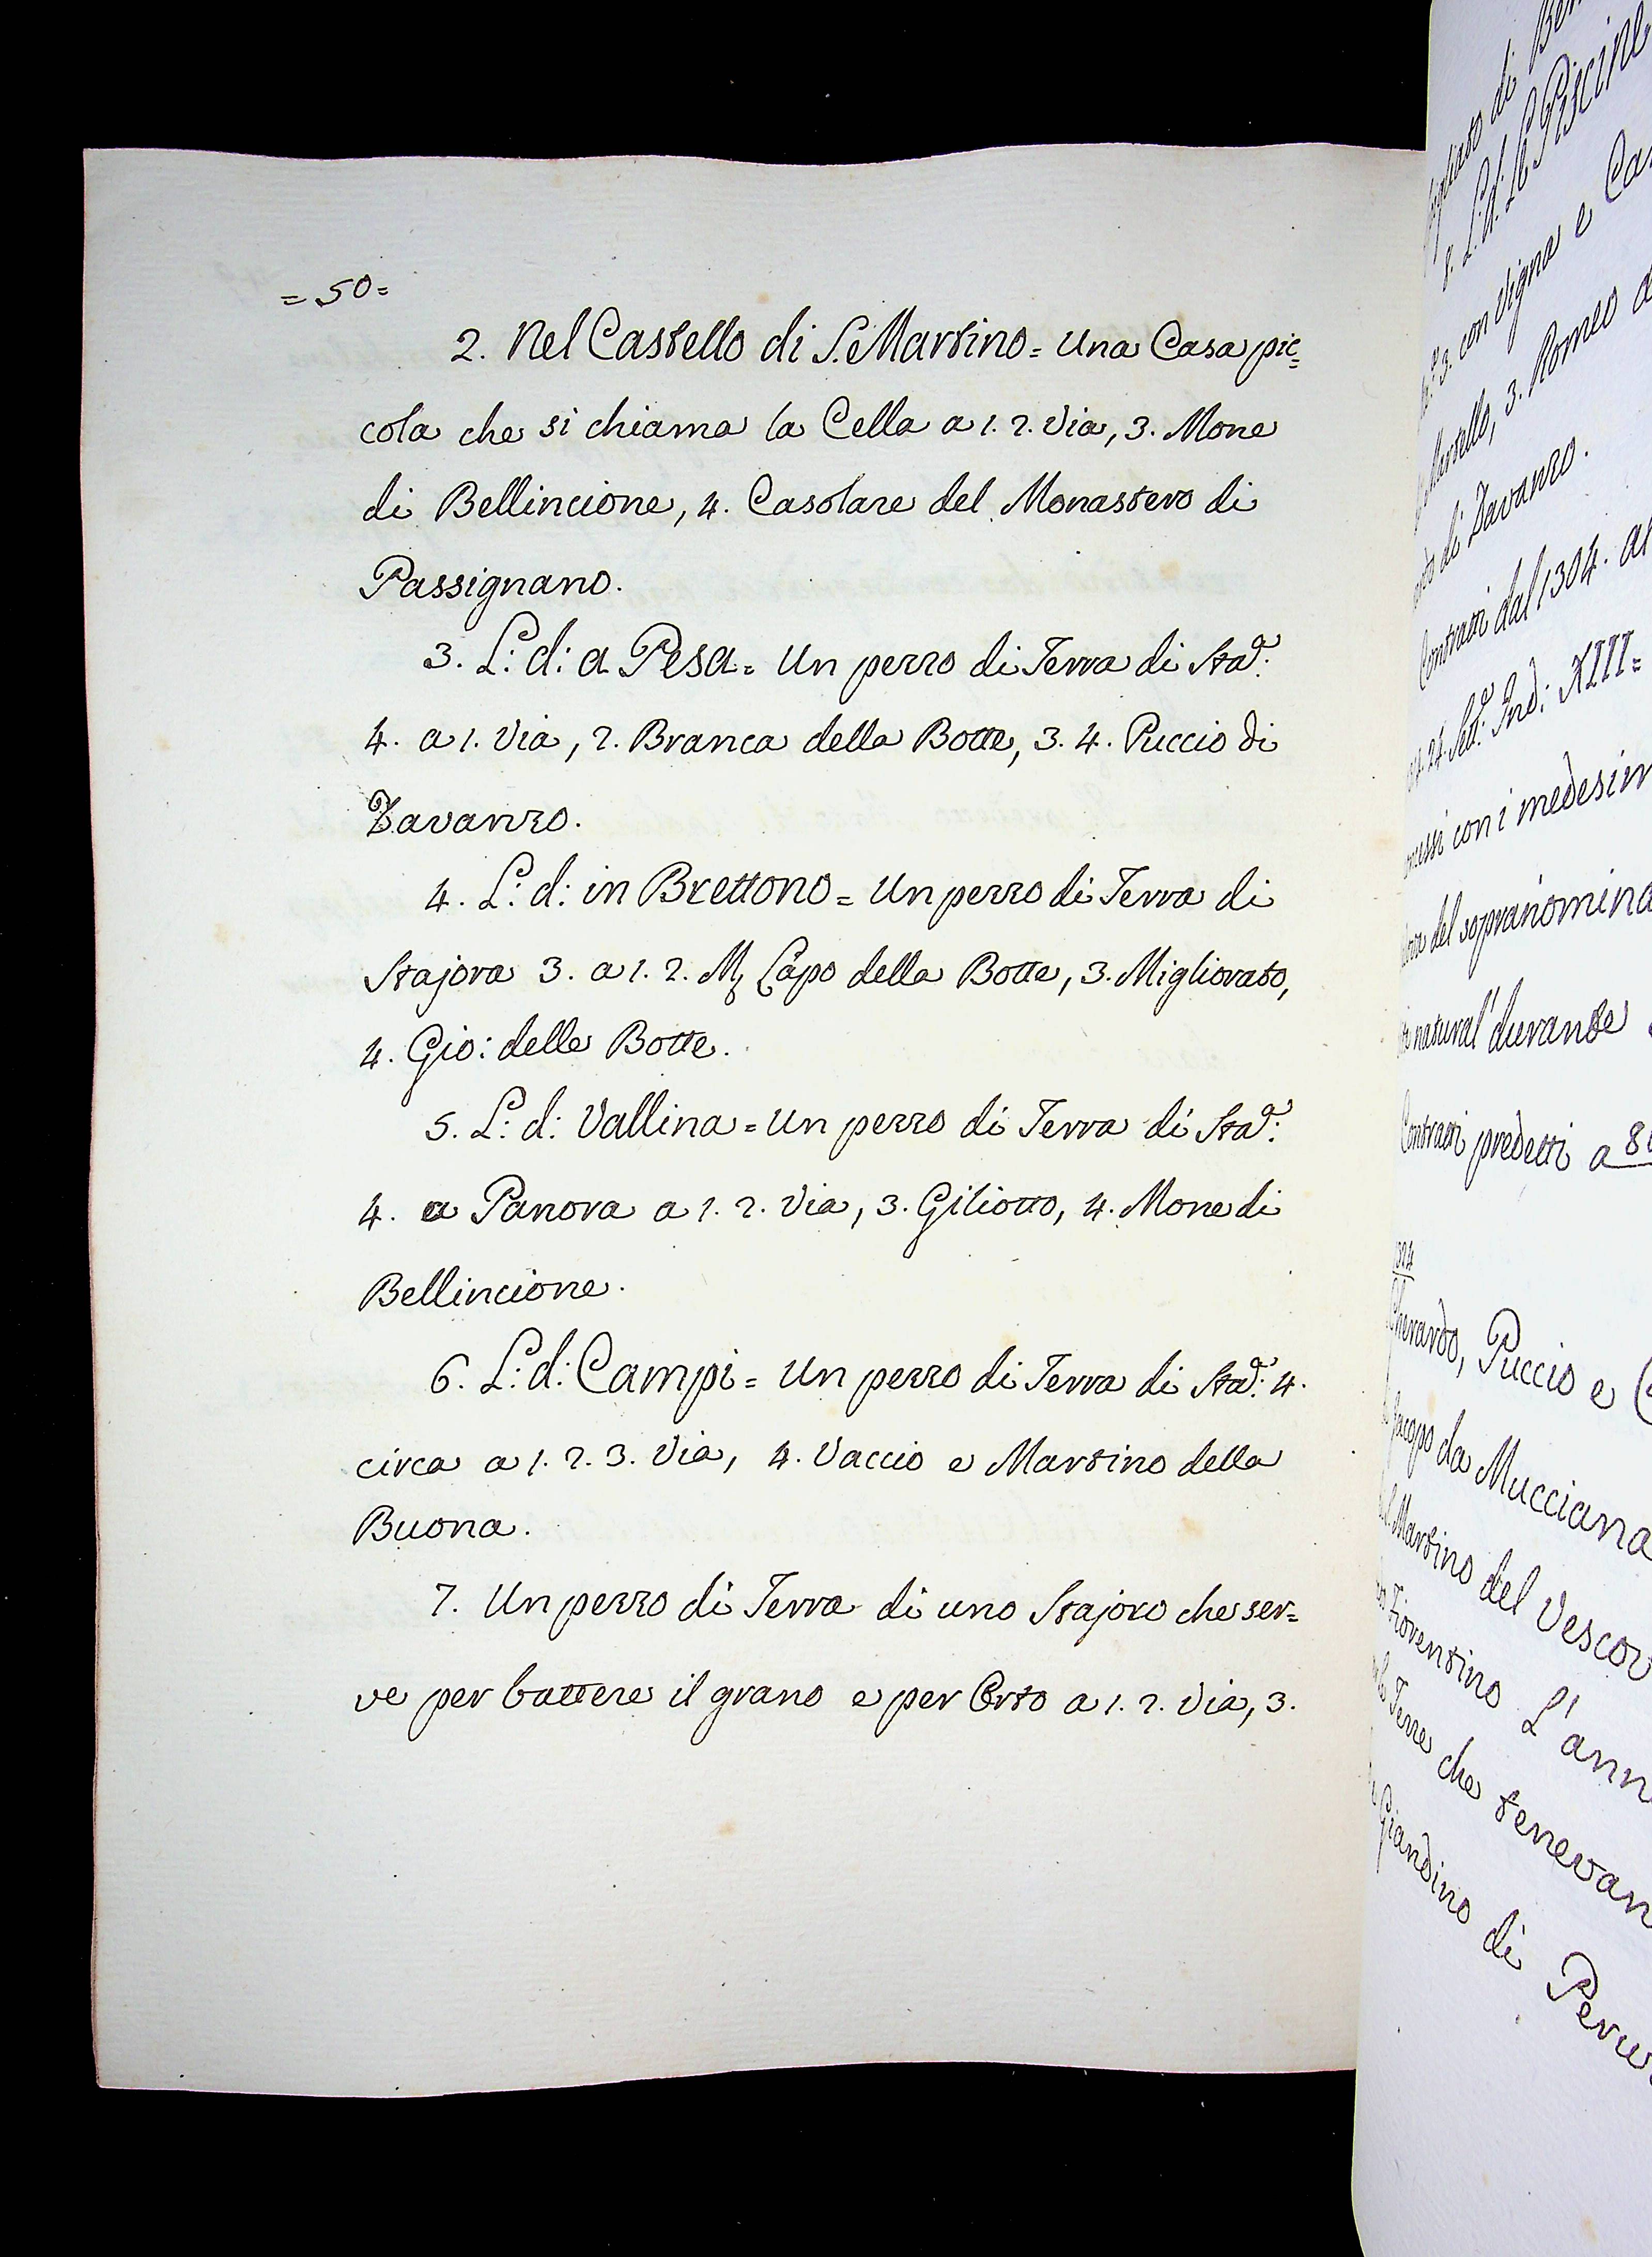 = 50 =
2. Nel Castello di S. Martino = Una Casa pic=
cola che si chiama la Cella a 1. 2. Via, 3. Mone
di Bellincione, 4. Casolare del Monastero di
Passignano.
3. L: d: a Pesa = Un pezzo di Terra di Sta:ª
4. a 1. Via, 2. Branca della Botte, 3. 4. Puccio di
Zavanzo.
4. L: d: in Brettono = Un pezzo di Terra di
Stajora 3. a 1. 2. M. Lapo della Botte, 3. Migliorato,
4. Gio: delle Botte.
5. L: d: Vallina = Un pezzo di Terra di Sta:ª
4. a Panora a 1. 2. Via, 3. Giliotto, 4. Mone di
Bellincione.
6. L: d: Campi = Un pezzo di Terra di Sta:ª 4.
circa a 1. 2. 3. Via, 4. Vaccio e Martino della
Buona.
7. Un pezzo di Terra di uno Stajoro che ser=
ve per battere il grano e per Orto a 1. 2. Via, 3.
di
8. L: d: Le
3. con Vigna e
3. Romeo
di Zavanzo.
Contratti dal 1304.
24. Ind: XIII =
con i
del
durante
Contratti predetti a
Puccio e
da
Martino del
L'
Terre che
Giandino di